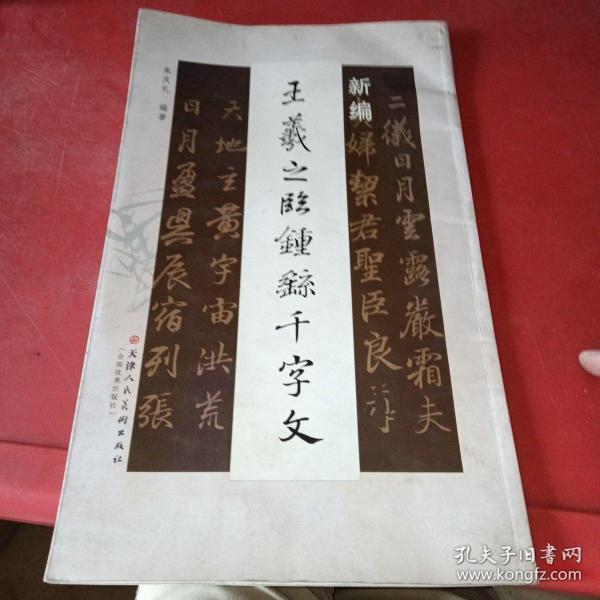 新编
王羲之臨鍾繇千字文
二儀日月雲露嚴霜夫
婦絜君聖臣良
天地玄黄宇宙洪荒
日月盈昃辰宿列張
编著
天津人民美術出版社
(全国优秀出版社)
孔夫子旧书网
www.kongfz.com